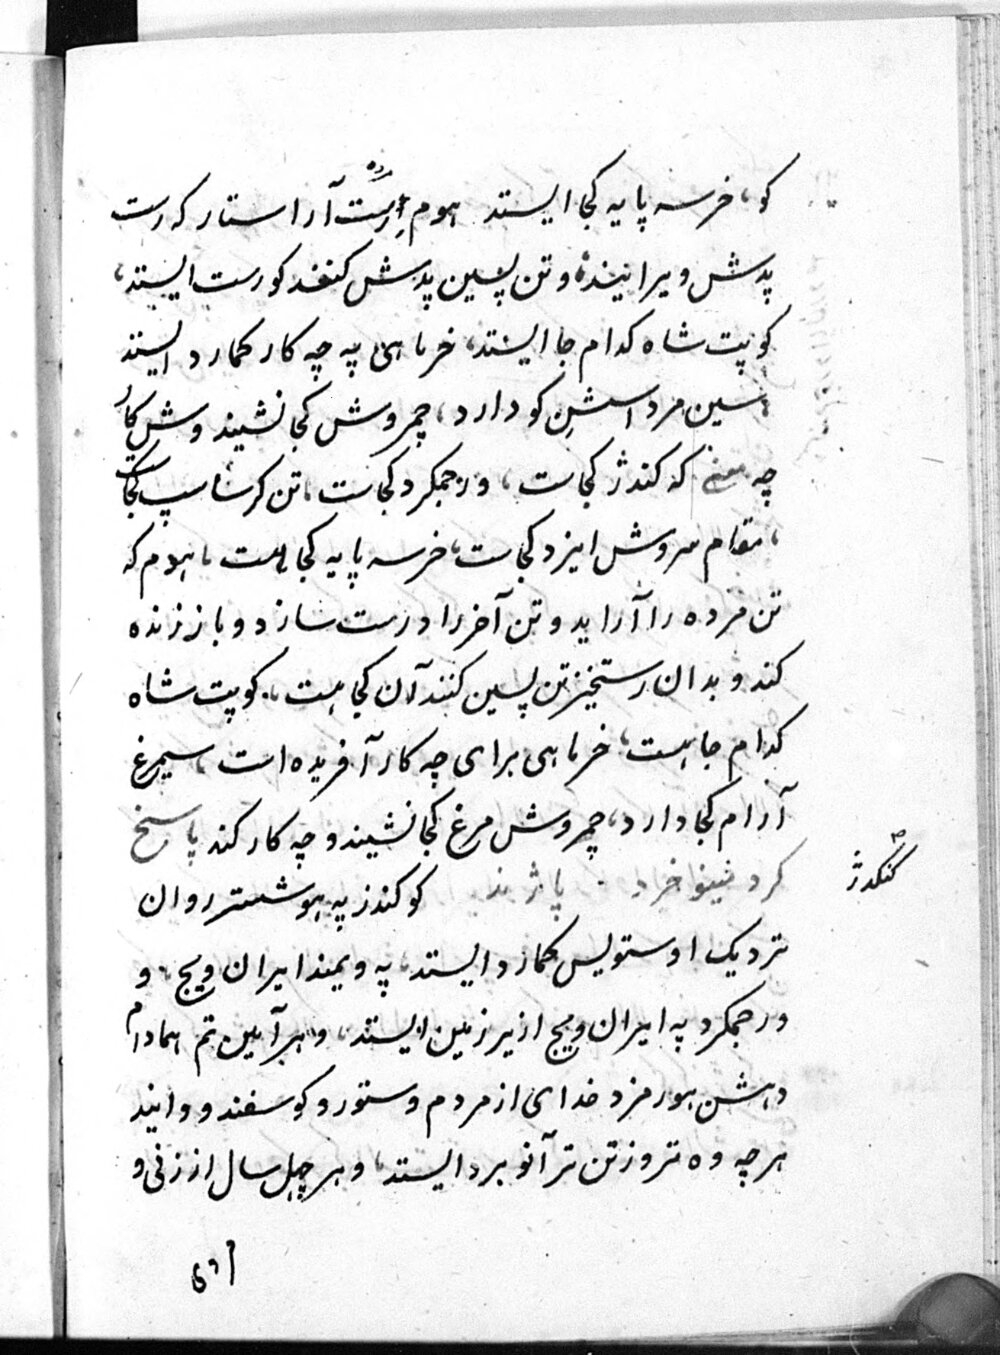 کو، خرسه پایه کجا ایستد هوم رست آراستار که رست
پدش ویرانینده و تن پسین پدش کنند کو رست ایستد،
کوپت شاه کدام جا ایستد، خر ماهی په چه کار گمارد ایستد
سین مرو اسشن کو دارد، چمروش کجا نشیند وش کار
چه معنے که کندژ کجاست، ورجمکرد کجاست، تن کرشاسپ کجاست
، مقام سروش ایزد کجاست، خرسه پایه کجا هست، هوم که
تن مرده را آراید و تن آخر را درست سازد و باز زنده
کند و بدان رستخیز تن پسین کنند آن کجا هست، کوپت شاه
کدام جا هست، خر ماهی برای چه کار آفریده است، سیمرغ
آرام کجا دارد، چمروش مرغ کجا نشیند و چه کار کند پاسخ
کرد مینو خرد پاژند کو کندز په هوشستر روان
نزدیک اوستویس گمارد ایستد، په ویمند ایران ویج، و
ورجمکرد په ایران ویج ازیر زمین ایستد، و هر آیین تم هما دام
دهشن هورمزد خدای از مردم و ستور و گوسفند و وایند
هرچه وه تر و زتن تر آنو برد ایستد، و هر چهل سال از زنی و
کنگدژ